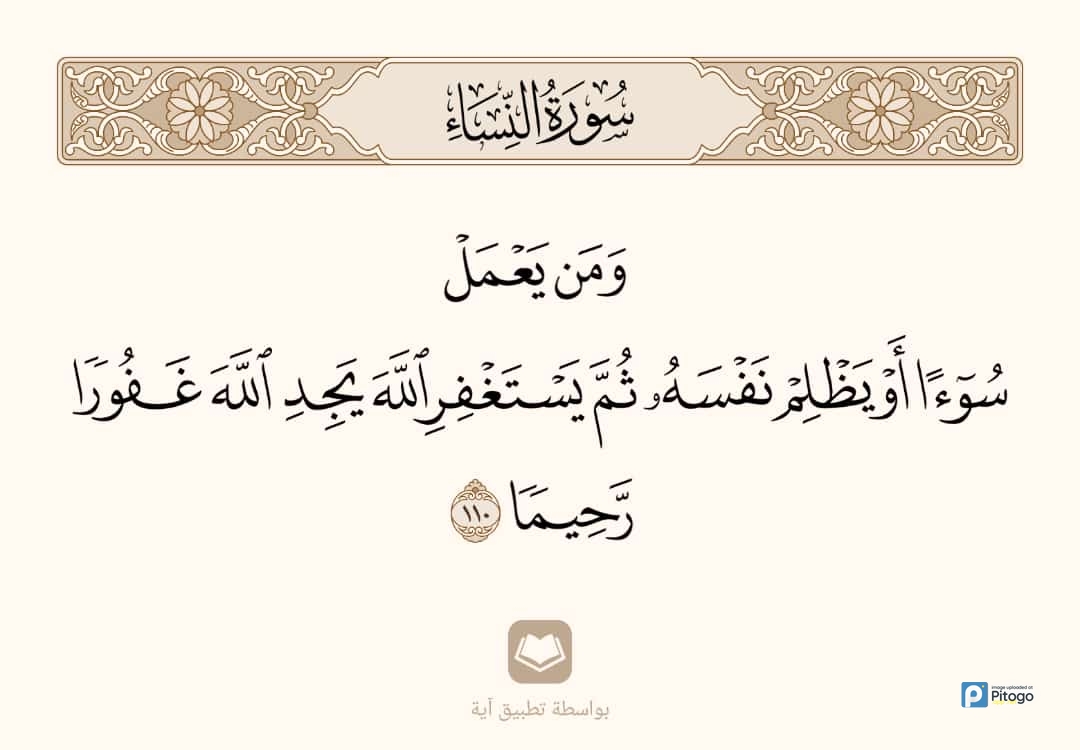 سُورَةُ النِّسَاءِ
وَمَن يَعۡمَلۡ
سُوٓءًا أَوۡ يَظۡلِمۡ نَفۡسَهُۥ ثُمَّ يَسۡتَغۡفِرِ ٱللَّهَ يَجِدِ ٱللَّهَ غَفُورٗا
رَّحِيمٗا ١١٠
بواسطة تطبيق آية
image uploaded at
Pitogo